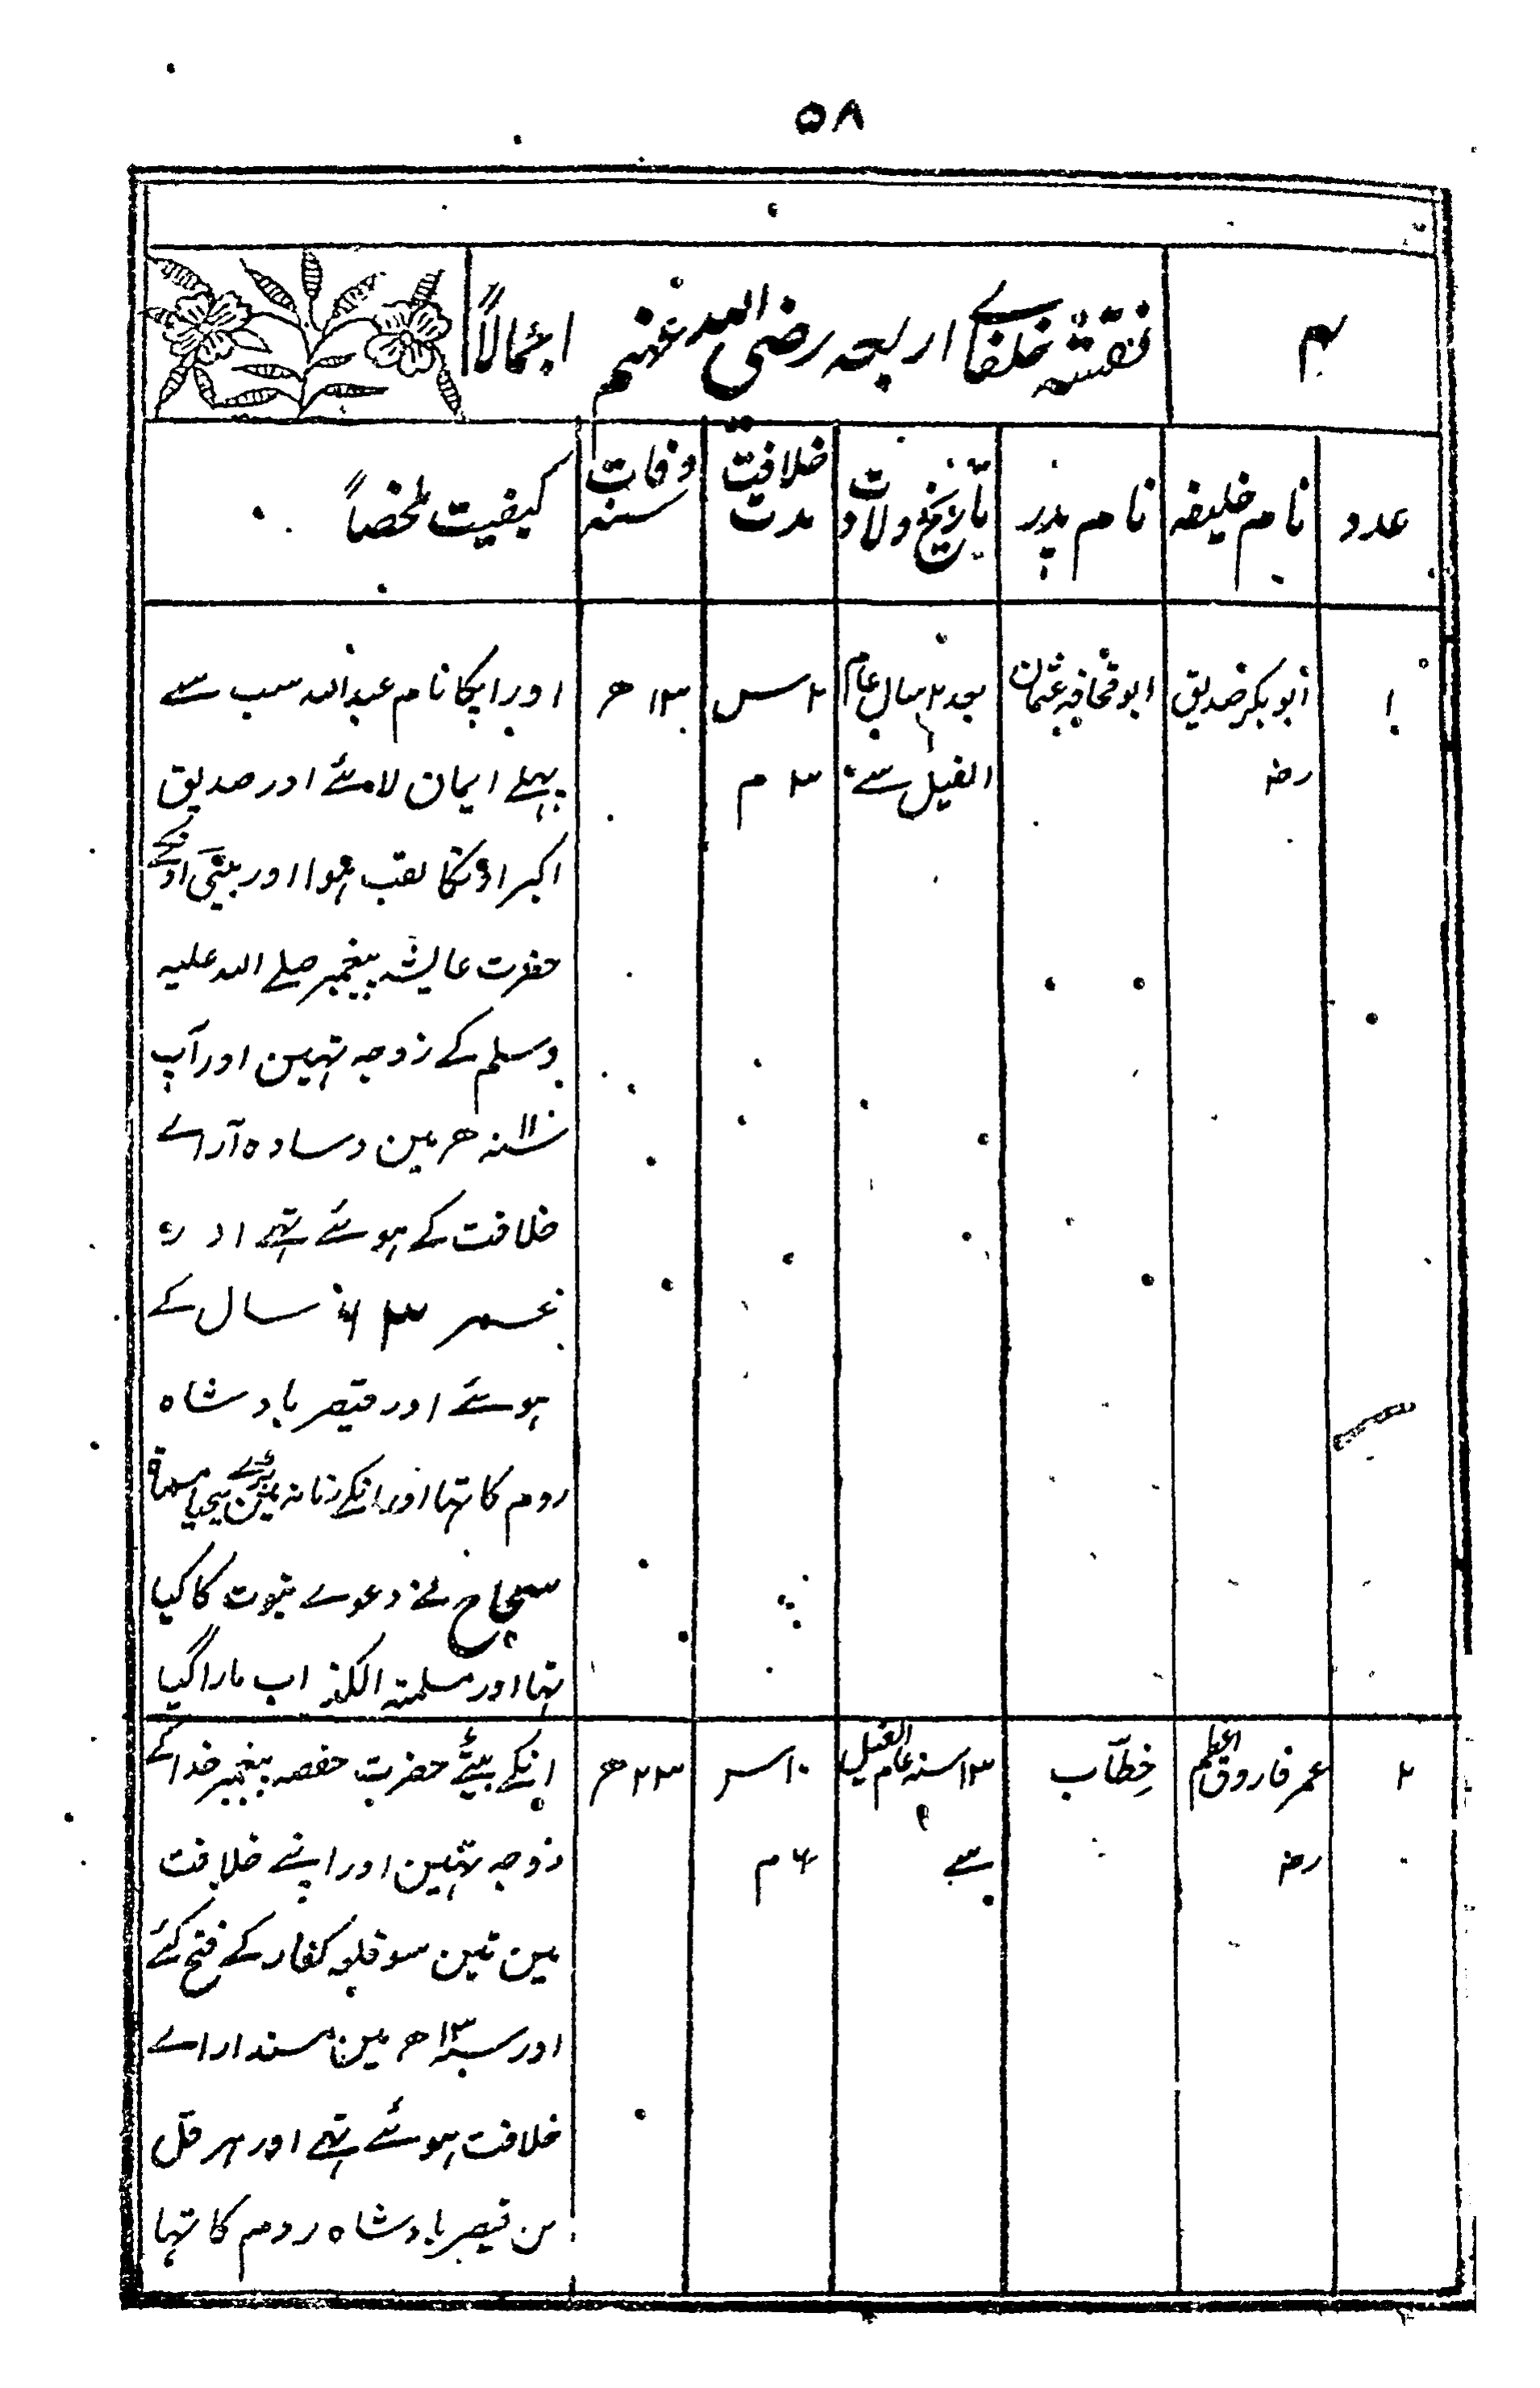 ۵۸
۴
نقشہ خلفاے اربعہ رضی اللہ عنہم اجمالاً
عدد
نام خلیفہ
نام پدر
تاریخ ولادت
خلافت مدت
وفات سنہ
کیفیت ملخصاً
۱
ابوبکر صدیق
رضہ
ابو قحافہ عثمان
بعد ۲ سال عام
الفیل سے
۲ س
۳ م
۱۳ ھ
اور اپکا نام عبداللہ سب سے
پہلے ایمان لائے اور صدیق
اکبر اونکا لقب ہوا اور بیٹی اونکے
حضرت عایشہ پیغمبر صلے اللہ علیہ
وسلم کے زوجہ تہین اور آپ
سنہ ۱۱ ھ مین وسادہ آراے
خلافت کے ہوئے تہے اور
عمر ۶۳ سال کے
ہوئے اور قیصر بادشاہ
روم کا تہا اور انکے زمانہ مین یحیا مسماۃ
سجاح نے دعوے نبوت کا کیا
تہا اور مسلمتہ الکذاب مارا گیا
۲
عمر فاروق اعظم
رضہ
خِطاب
۱۳ سنہ عام الفیل
سے
۱۰ س
۶ م
۲۳ ھ
انکے بیٹے حضرت حفصہ پیغمبر خدا کے
زوجہ تہین اور اپنے خلافت
مین تین سو قلعہ کفار کے فتح کئے
اور سنہ ۱۳ ھ مین مسند اراے
خلافت ہوئے تہے اور ہرقل
بن قیصر بادشاہ روم کا تہا